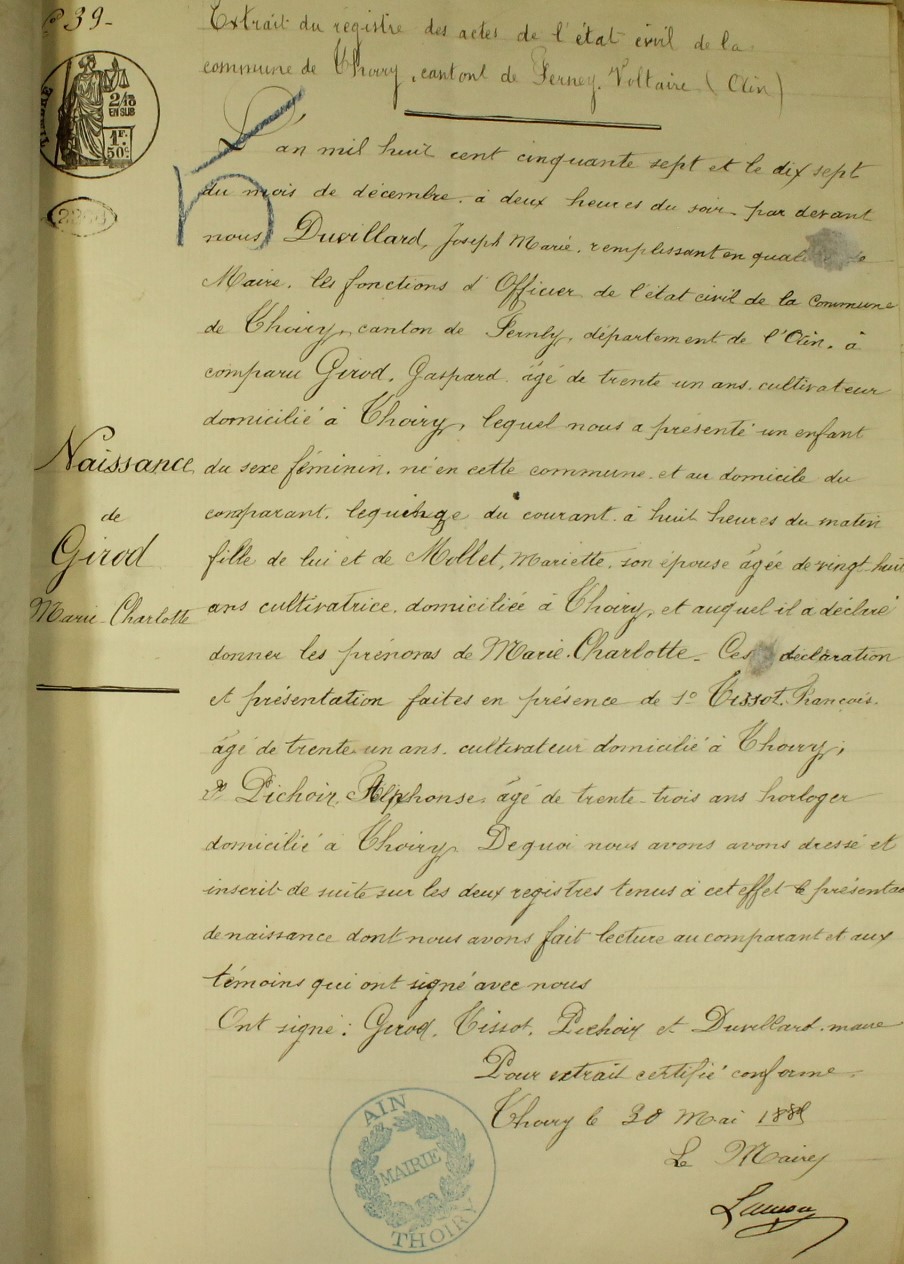 39-
TIMBRE
2/10
EN SUS
1 F.
50c
Extrait du registre des actes de l'état civil de la
commune de Thoiry, cantont de Ferney-Voltaire (Ain)
L'an mil huit cent cinquante sept et le dix sept
du mois de décembre à deux heures du soir par devant
nous, Duvillard, Joseph Marie, remplissant en
Maire, les fonctions d'Officier de l'état civil de la Commune
de Thoiry, canton de Ferney, département de l'Ain, à
comparu Girod, Gaspard âgé de trente un ans, cultivateur
domicilié à Thoiry, lequel nous a présenté un enfant
du sexe féminin, né en cette commune et au domicile du
comparant, le quinze du courant à huit heures du matin
fille de lui et de Mollet, Mariette, son épouse âgée de vingt-huit
ans cultivatrice, domiciliée à Thoiry, et auquel il a déclaré
donner les prénoms de Marie-Charlotte. Ces déclaration
et présentation faites en présence de 1º Tissot, François,
âgé de trente un ans, cultivateur domicilié à Thoiry,
2º Pichoir, Alphonse, âgé de trente-trois ans horloger
domicilié à Thoiry. De quoi nous avons avons dressé et
inscrit de suite sur les deux registres tenus à cet effet le présent acte
de naissance dont nous avons fait lecture au comparant et aux
témoins qui ont signé avec nous
Ont signé: Girod, Tissot, Pichoir et Duvillard, maire
Pour extrait certifié conforme
Thoiry le 30 Mai
Le Maire
Naissance
de
Girod
Marie-Charlotte
AIN
MAIRIE
THOIRY